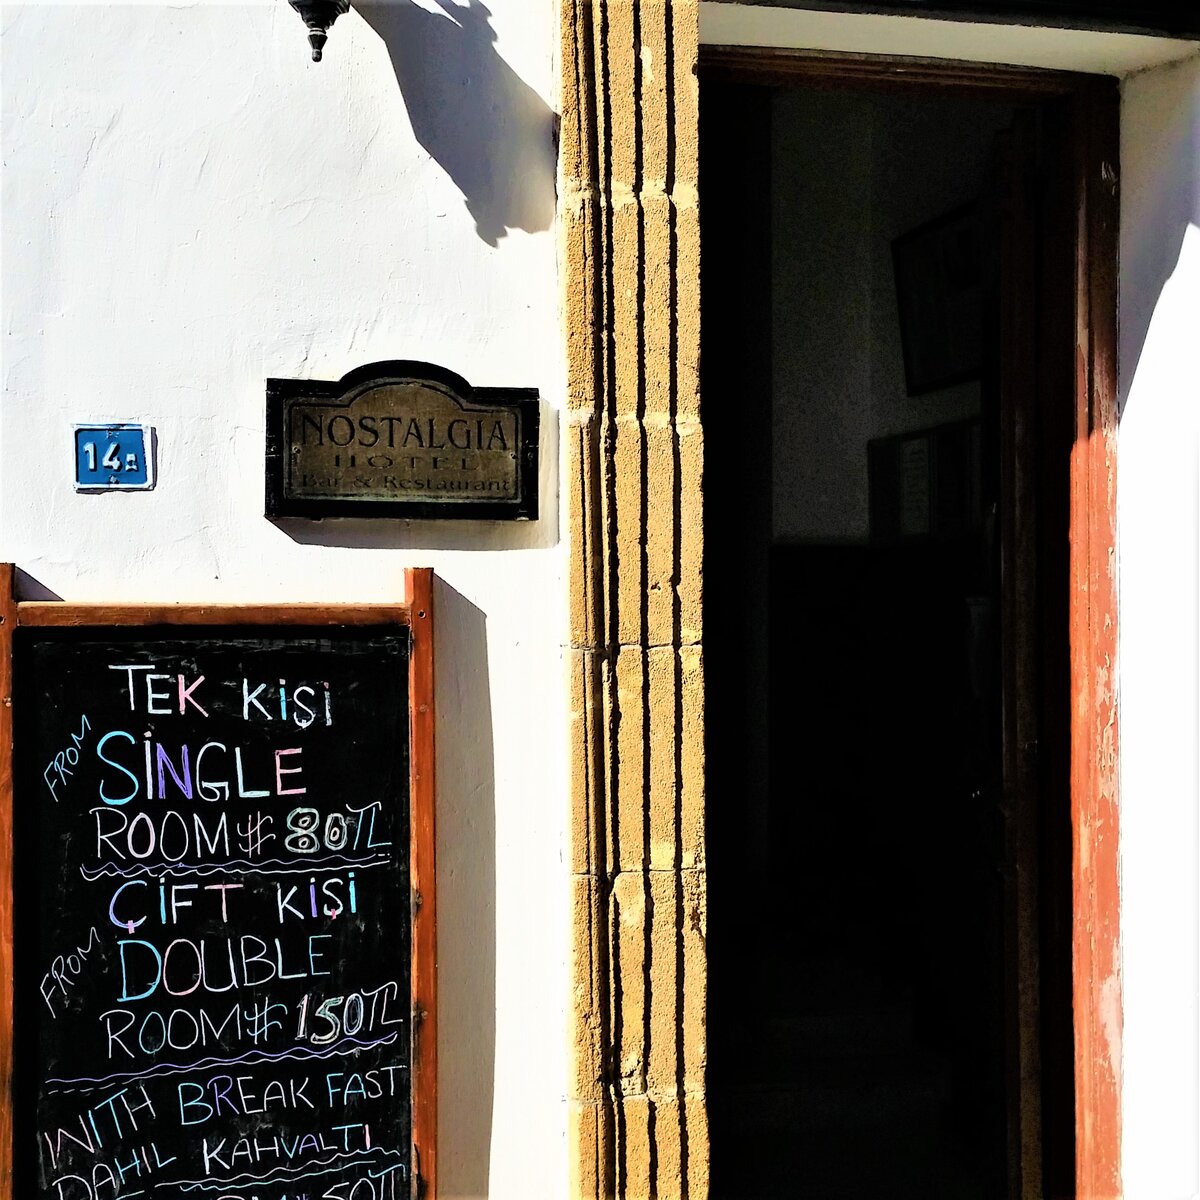 NOSTALGIA
HOTEL
Bar & Restaurant
14a
TEK KİŞİ
FROM SİNGLE
ROOM # 80TL
ÇİFT KİŞİ
FROM DOUBLE
ROOM # 150TL
WITH BREAKFAST
DAHIL KAHVALTI
50TL